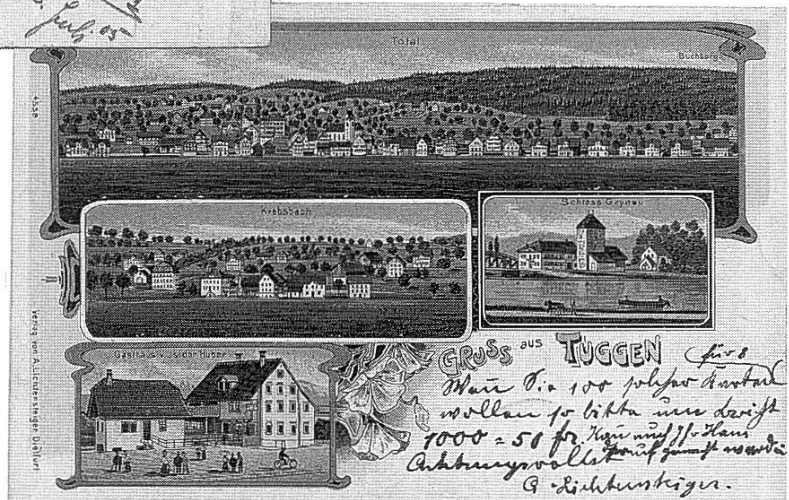 Feb. 05
Total
Buchberg
4538
Krebsbach
Schloss Grynau
Verlag von A. Lichtensteiger, Dietfurt
Gasthaus v. Isidor Huber
GRUSS aus TUGGEN
für 8
Wenn Sie 100 solcher Karten
wollen so bitte um Bericht
1000 = 50 fr. Kann auch Ihr Haus
Achtungsvollst drauf gemacht werden
A. Lichtensteiger.